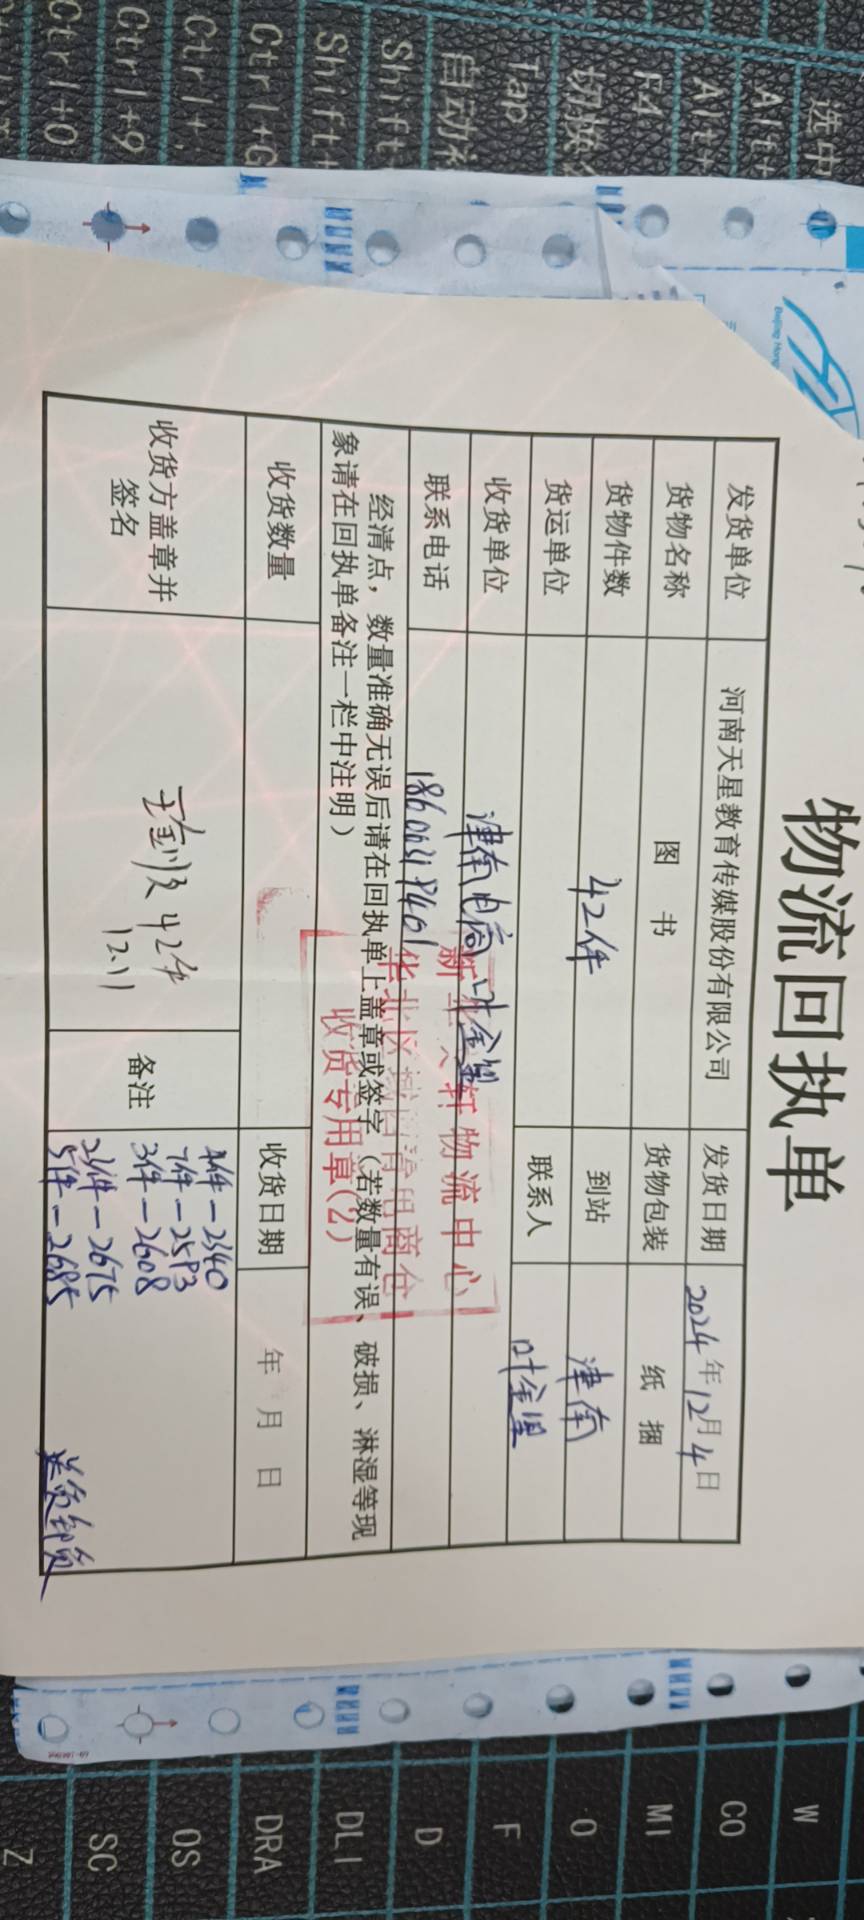 物流回执单
发货单位 河南天星教育传媒股份有限公司 发货日期 2024年12月4日
货物名称 图 书 货物包装 纸 捆
货物件数 42件 到站 津南
货运单位 联系人 叶金星
收货单位 津南电商 叶金星
联系电话 18600318401
新华文轩物流中心
华北区域西青电商仓
收货专用章(2)
经清点，数量准确无误后请在回执单上盖章或签字（若数量有误、破损、淋湿等现
象请在回执单备注一栏中注明）
收货数量 收货日期 年 月 日
收货方盖章并
签名
42件
12.11
备注
4件-2340
7件-2593
3件-2608
23件-2675
5件-2685
送货卸货
Beijing Hong
选中
Alt+
Alt+
F4
切换
Tap
自动
Shift
Shift+
Ctrl+G
Ctrl+
Ctrl+9
Ctrl+0
W
CO
MI
O
F
D
DLI
DRA
OS
SC
Z